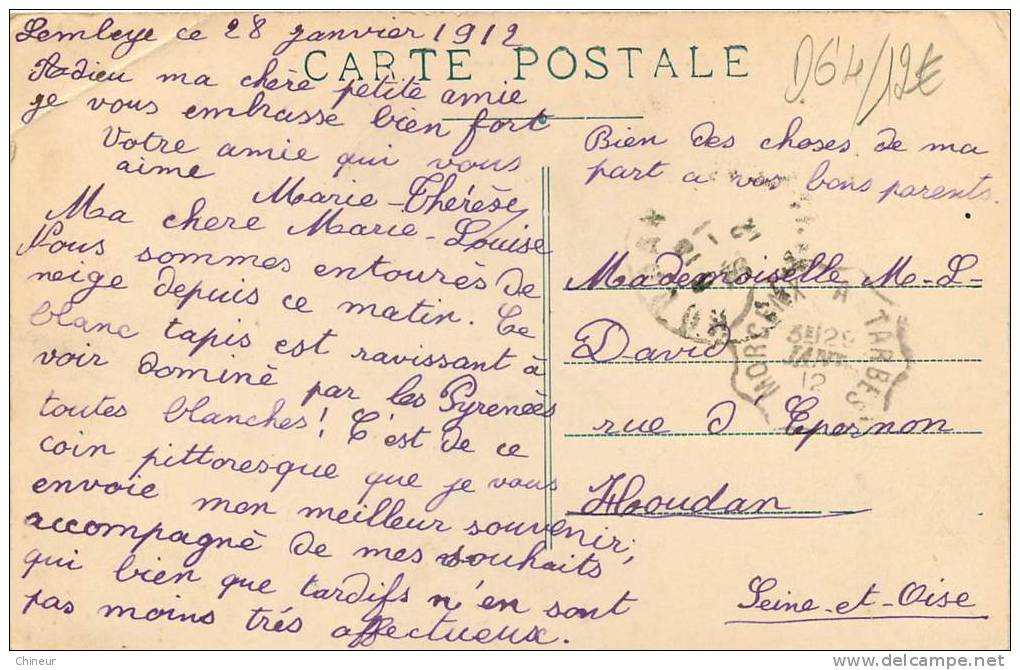 Lembeye ce 28 janvier 1912
CARTE POSTALE
D64/12€
Adieu ma chère petite amie
je vous embrasse bien fort
Votre amie qui vous
aime
Marie-Thérèse
Ma chere Marie-Louise
Nous sommes entourés de
neige depuis ce matin. Ce
blanc tapis est ravissant à
voir dominé par les Pyrenées
toutes blanches! C'est de ce
coin pittoresque que je vous
envoie mon meilleur souvenir,
accompagné de mes souhaits
qui bien que tardifs n'en sont
pas moins trés affectueux.
Bien des choses de ma
part a vos bons parents.
Mademoiselle M-L-
David
rue d Epernon
Houdan
Seine-et-Oise
A TARBES
12
Chineur
www.delcampe.net